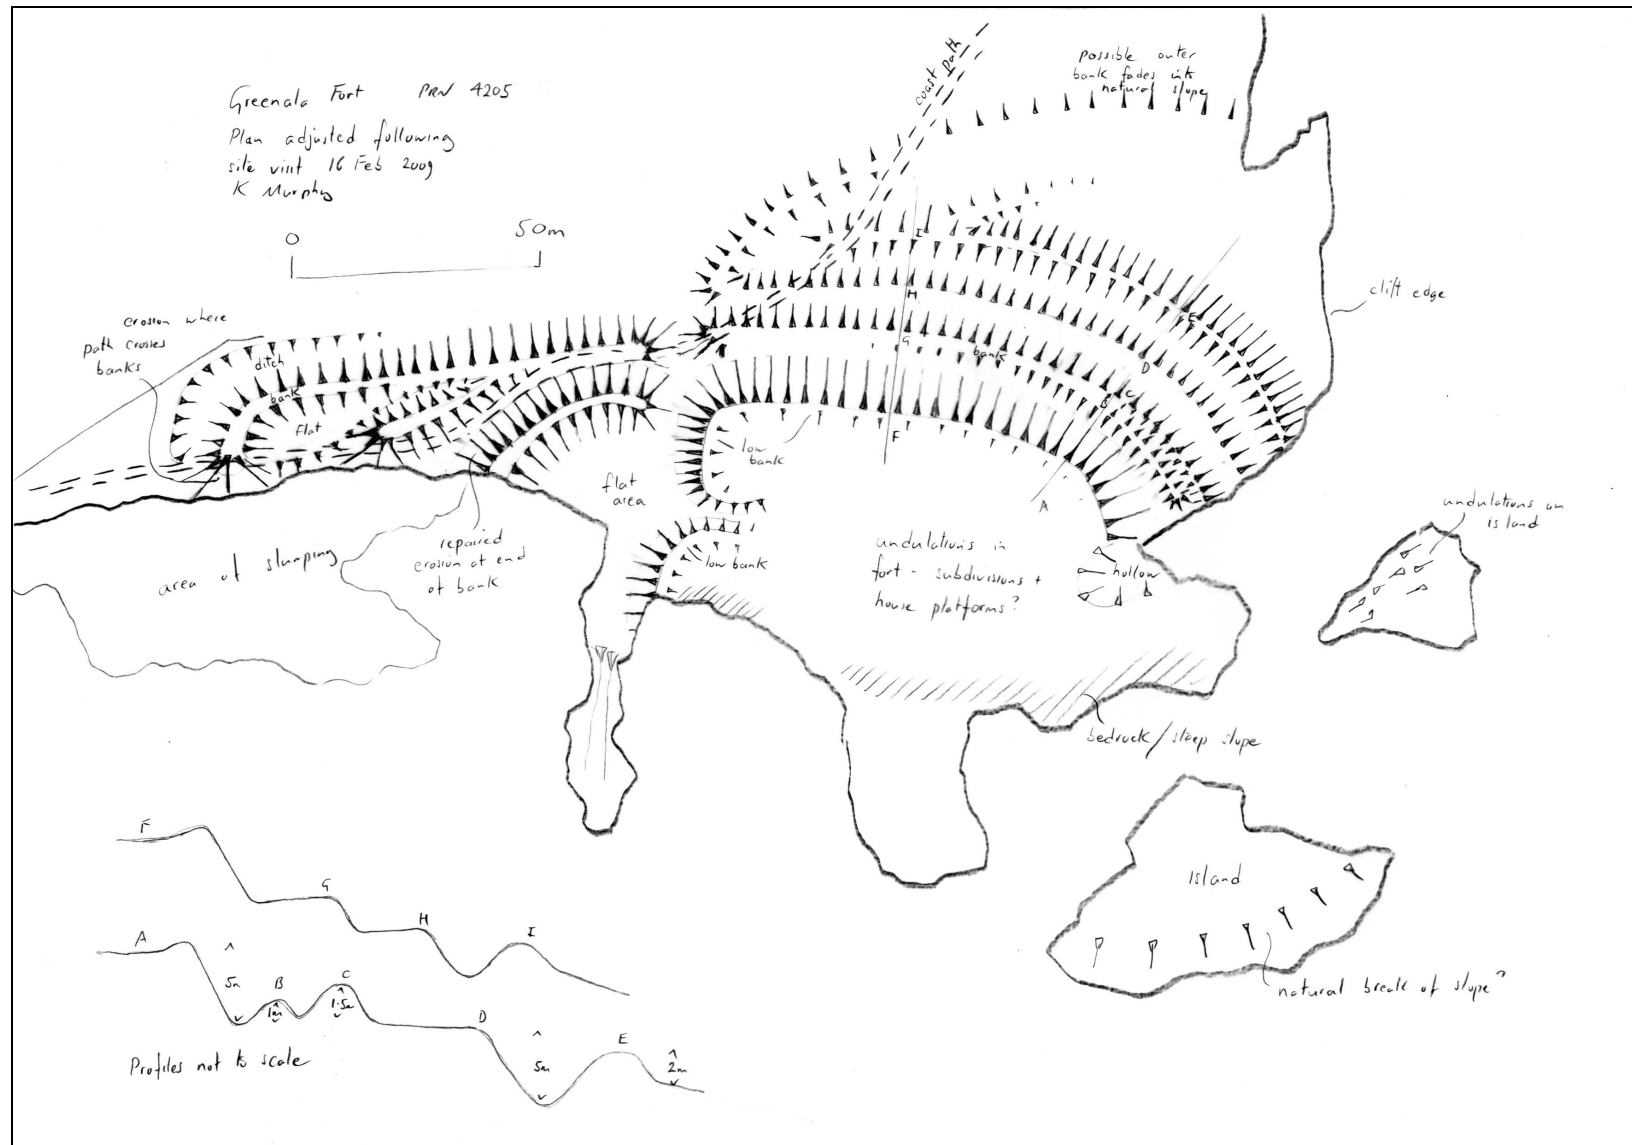 Greenala Fort PRN 4205
Plan adjusted following
site visit 16 Feb 2009
K Murphy
0 50m
coast path
possible outer
bank fades into
natural slope
cliff edge
erosion where
path crosses
banks
ditch
bank
flat
I
H
G
bank
E
D
C
B
F
A
low
bank
flat
area
low bank
area of slumping
repaired
erosion at end
of bank
undulations in
fort - subdivisions +
house platforms?
hollow
undulations on
island
bedrock/steep slope
island
natural break of slope?
F
G
H
I
A
5m
B
1m
C
1.5m
D
5m
E
2m
Profiles not to scale